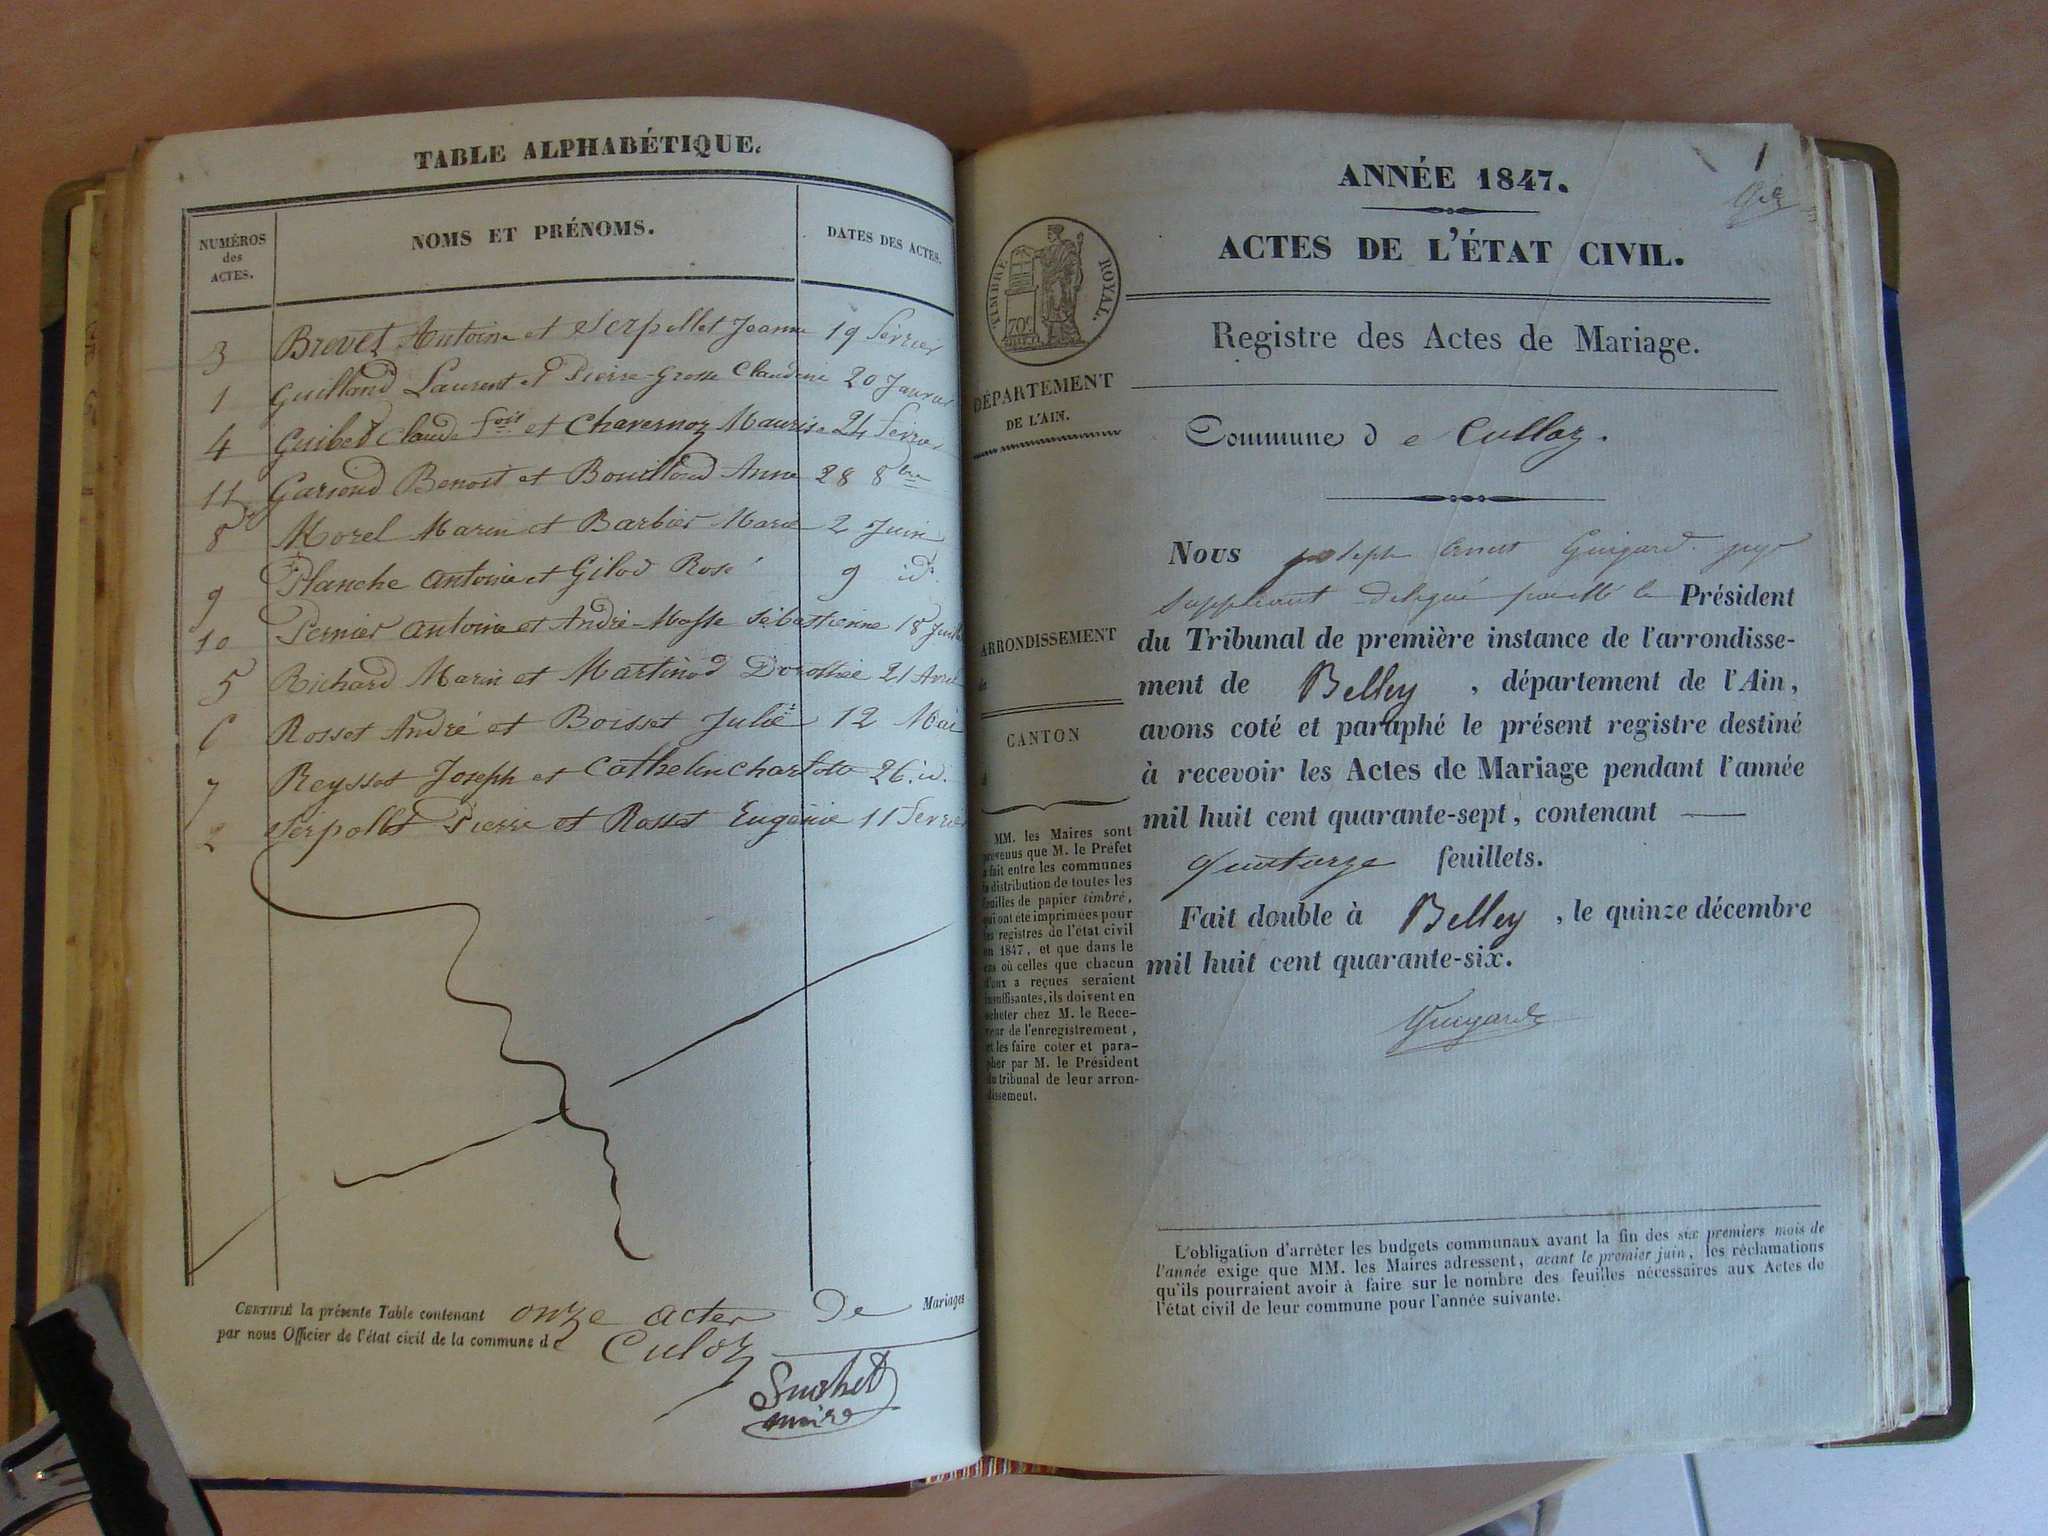 TABLE ALPHABÉTIQUE.
NUMÉROS des ACTES.
NOMS ET PRÉNOMS.
DATES DES ACTES.
3 Brevet Antoine et Serpollet Jeanne 19 Février
1 Guilland Laurent et Pierre-Grosse Claudine 20 Janvier
4 Guibet Claude Fois et Chavernoz Maurise 24 Février
11 Garioud Benoit et Bouilloud Anne 28 8bre
8 Morel Marin et Barbier Marie 2 Juin
9 Planche Antoine et Gilod Rose 9 id.
10 Pernier Antoine et André-Masse Sébastienne 18 Juillet
5 Richard Marin et Martinod Dorothée 21 Avril
6 Rosset André et Boisset Julie 12 Mai
7 Reysset Joseph et Cathelin Charlotte 26 id.
2 Serpollet Pierre et Rosset Eugénie 11 Février
CERTIFIÉ la présente Table contenant onze actes de Mariages
par nous Officier de l'état civil de la commune de Culoz
Suchet
maire
1
ANNÉE 1847.
ACTES DE L'ÉTAT CIVIL.
TIMBRE ROYAL.
70c
Registre des Actes de Mariage.
DÉPARTEMENT
DE L'AIN.
Commune de Culloz.
Nous joseph Guigard juge
suppléant délégué le Président
du Tribunal de première instance de l'arrondisse-
ment de Belley, département de l'Ain,
avons coté et paraphé le présent registre destiné
à recevoir les Actes de Mariage pendant l'année
mil huit cent quarante-sept, contenant —
quatorze feuillets.
Fait double à Belley, le quinze décembre
mil huit cent quarante-six.
Guigard
ARRONDISSEMENT
de
CANTON
d
MM. les Maires sont
prévenus que M. le Préfet
a fait entre les communes
la distribution de toutes les
feuilles de papier timbré,
qui ont été imprimées pour
les registres de l'état civil
en 1847, et que dans le
cas où celles que chacun
d'eux a reçues seraient
insuffisantes, ils doivent en
acheter chez M. le Rece-
veur de l'enregistrement,
et les faire coter et para-
pher par M. le Président
du tribunal de leur arron-
dissement.
L'obligation d'arrêter les budgets communaux avant la fin des six premiers mois de
l'année exige que MM. les Maires adressent, avant le premier juin, les réclamations
qu'ils pourraient avoir à faire sur le nombre des feuilles nécessaires aux Actes de
l'état civil de leur commune pour l'année suivante.